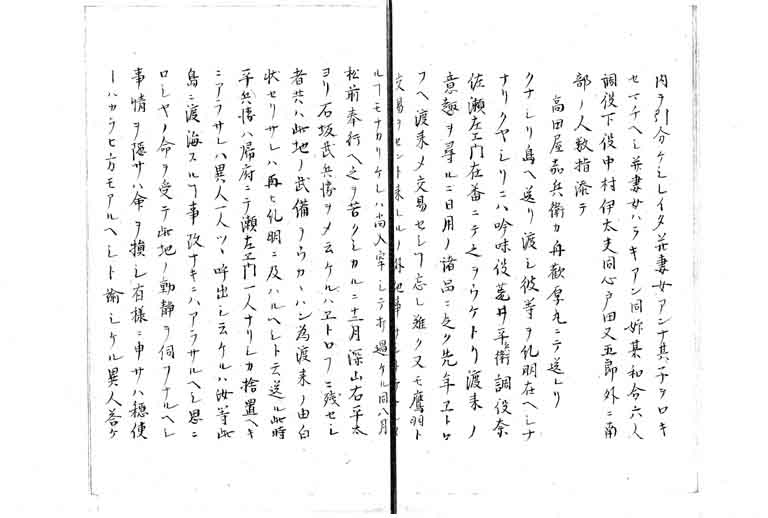 内ヲ引分ケシレイタ并妻女アンナ其子ヲロキ
セマチヘシ并妻女ハラキアン同姉某和合六人
調役下役中村伊太夫同心戸田又五郎外ニ南
部ノ人数指添テ
高田屋嘉兵衛カ舟歓厚丸ニテ送レリ
クナシリ島ヘ送リ渡シ彼等ヲ化明在ヘシナ
ナリクヤシリニハ吟味役菟井平兵衛調役奈
佐瀬左エ門在番ニテ之ヲウケトリ渡来ノ
意趣ヲ尋ルニ日用ノ諸品ニ乏ク先年ヱトロ
フヘ渡来〆交易セシ忘レ難ク又モ鷹羽ト
交易ヲセント来レルノ外他事
ルヿモナカリケレハ尚入牢シテホ過ケル同八月
松前奉行ヘ之ヲ苦クミカルニ十二月深山右平太
ヨリ石坂武兵衛ヲ〆云ケルハヱトロフニ残セシ
者共ハ此地ノ武備ヲウカヽハン為渡来ノ由白
状セリサレハ再ヒ化明ニ及ハルヘシト云送ル此時
平兵衛ハ帰府ニテ瀬左エ門一人ナリシカ捨置ヘキ
ニアラサレハ異人一人ツヽ呼出シ云ケルハ汝等此
島ニ渡海スルヿ事改ナキニハアラサルヘシ思ニ
ロシヤノ命ヲ受テ此地ノ動静ヲ伺フナルヘシ
事情ヲ隠サハ命ヲ損シ有様ニ申サハ穏便
ーハカラヒ方モアルヘシト諭シケル異人答ケ